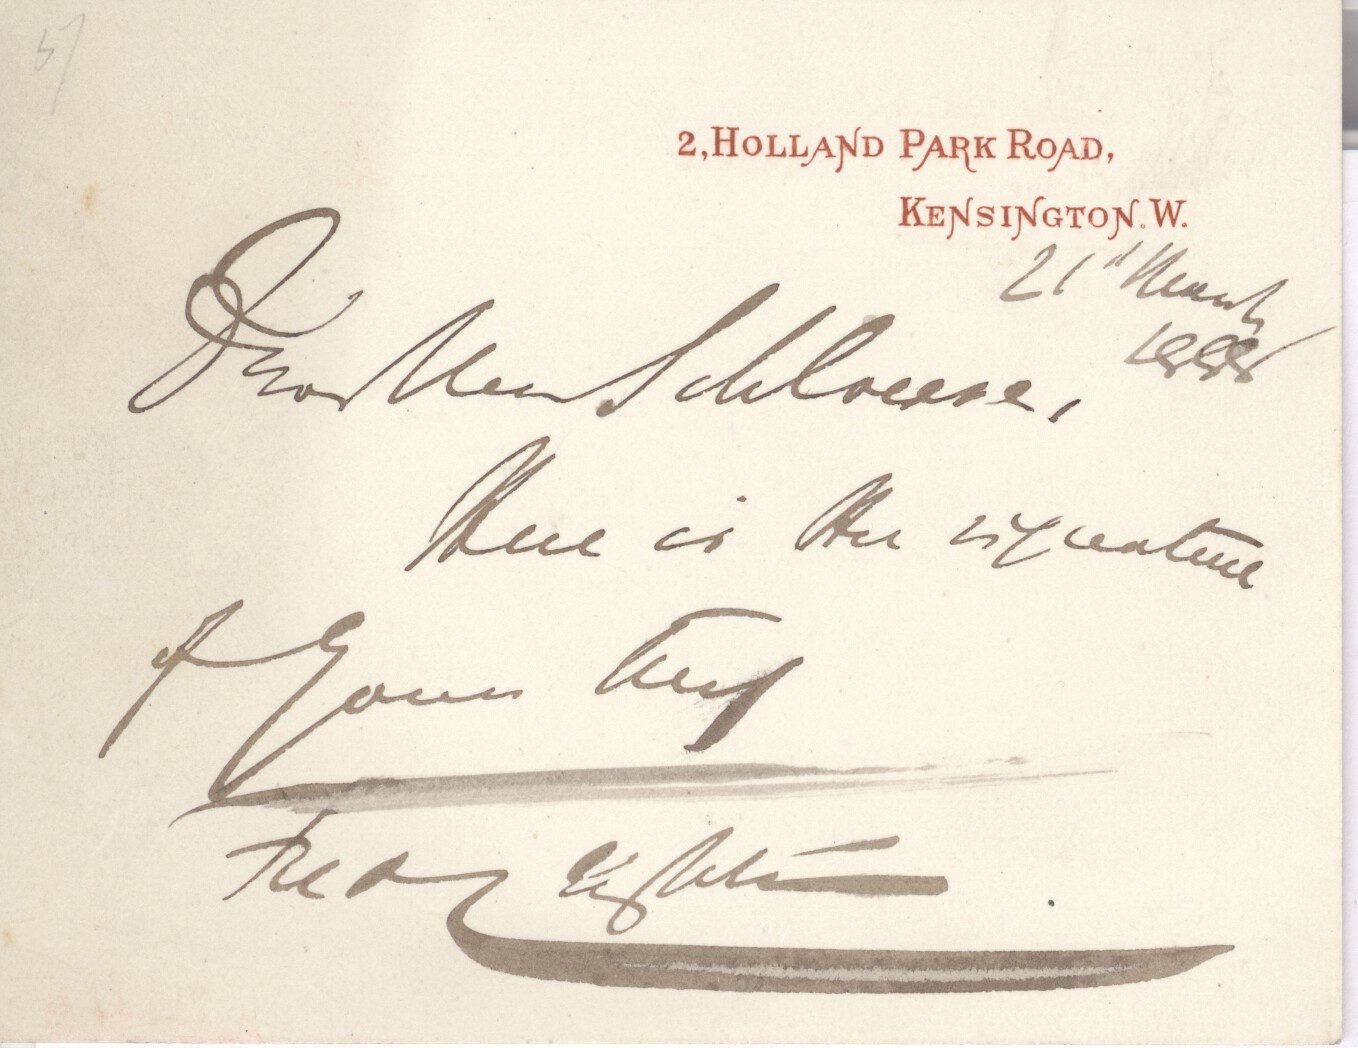 57
2, HOLLAND PARK ROAD,
KENSINGTON. W.
21st March
1888
Dear Mrs Schloesser,
Here is the signature
of Yours truly
Fred Leighton